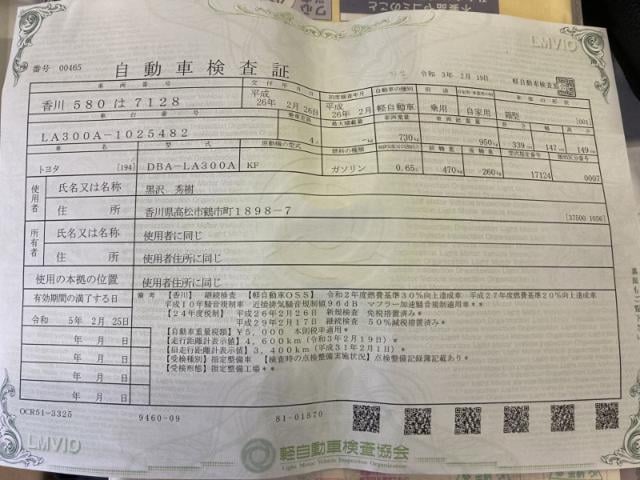 LMVIO
番号 00465
自動車検査証
令和 3年 2月19日
軽自動車検査協
車両番号
交付年月日
初度検査年月
自動車の種別
用途
自家用・事業用の別
車体の形状
香川 580 は 7128
平成 26年 2月26日
平成 26年 2月
軽自動車
乗用
自家用
箱型
[001]
車台番号
乗車定員
最大積載量
車両重量
車両総重量
長さ
幅
高さ
LA300A-1025482
4人
-kg
730kg
950kg
339cm
147cm
149cm
車名
型式
原動機の型式
燃料の種類
前軸重
後軸重
型式指定番号
類別区分番号
トヨタ
[194]
DBA-LA300A
KF
ガソリン
0.65L
470kg
260kg
17124
0007
使用者
氏名又は名称
黒沢 秀樹
住所
香川県高松市鶴市町1898-7
[37500 1656]
所有者
氏名又は名称
使用者に同じ
住所
使用者住所に同じ
使用の本拠の位置
使用者住所に同じ
有効期間の満了する日
令和 5年 2月25日
年 月 日
年 月 日
年 月 日
備考
【香川】 継続検査 【軽自動車OSS】 令和2年度燃費基準30%向上達成車 平成27年度燃費基準20%向上達成車
平成10年騒音規制車 近接排気騒音規制値96dB マフラー加速騒音規制適用車*
【24年度税制】 平成26年2月26日 新規検査 免税措置済み*
平成29年2月17日 継続検査 50%減税措置済み*
【自動車重量税額】¥5,000 本則税率適用*
【走行距離計表示値】4,600km(令和3年2月19日)*
【旧走行距離計表示値】3,400km(平成31年2月1日)*
【受検種別】指定整備車 【検査時の点検整備実施状況】点検整備記録簿記載あり*
【受検形態】指定整備工場**
OCR51-3325
9460-09
81-01870
LMVIO
軽自動車検査協会
Light Motor Vehicle Inspection Organization